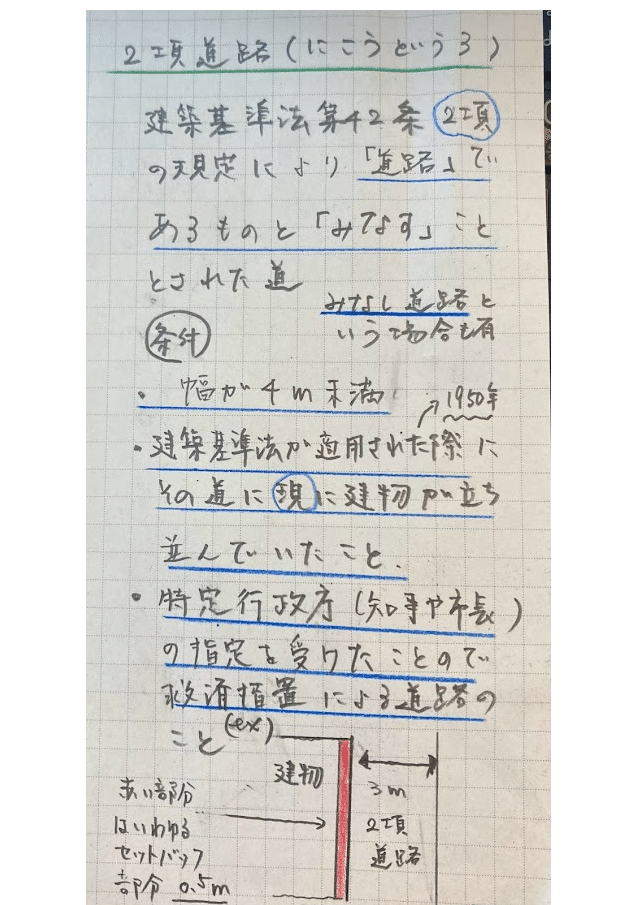 2項道路(にこうどうろ)
建築基準法第42条 2項
の規定により「道路」で
あるものと「みなす」こと
とされた道
みなし道路と
いう場合も有
条件
・幅が4m未満
1950年
・建築基準法が適用された際に
その道に現に建物が立ち
並んでいたこと.
・特定行政庁(知事や市長)
の指定を受けたことので
救済措置による道路の
こと(ex)
建物
3m
2項
道路
赤い部分
はいわゆる
セットバック
部分 0.5m